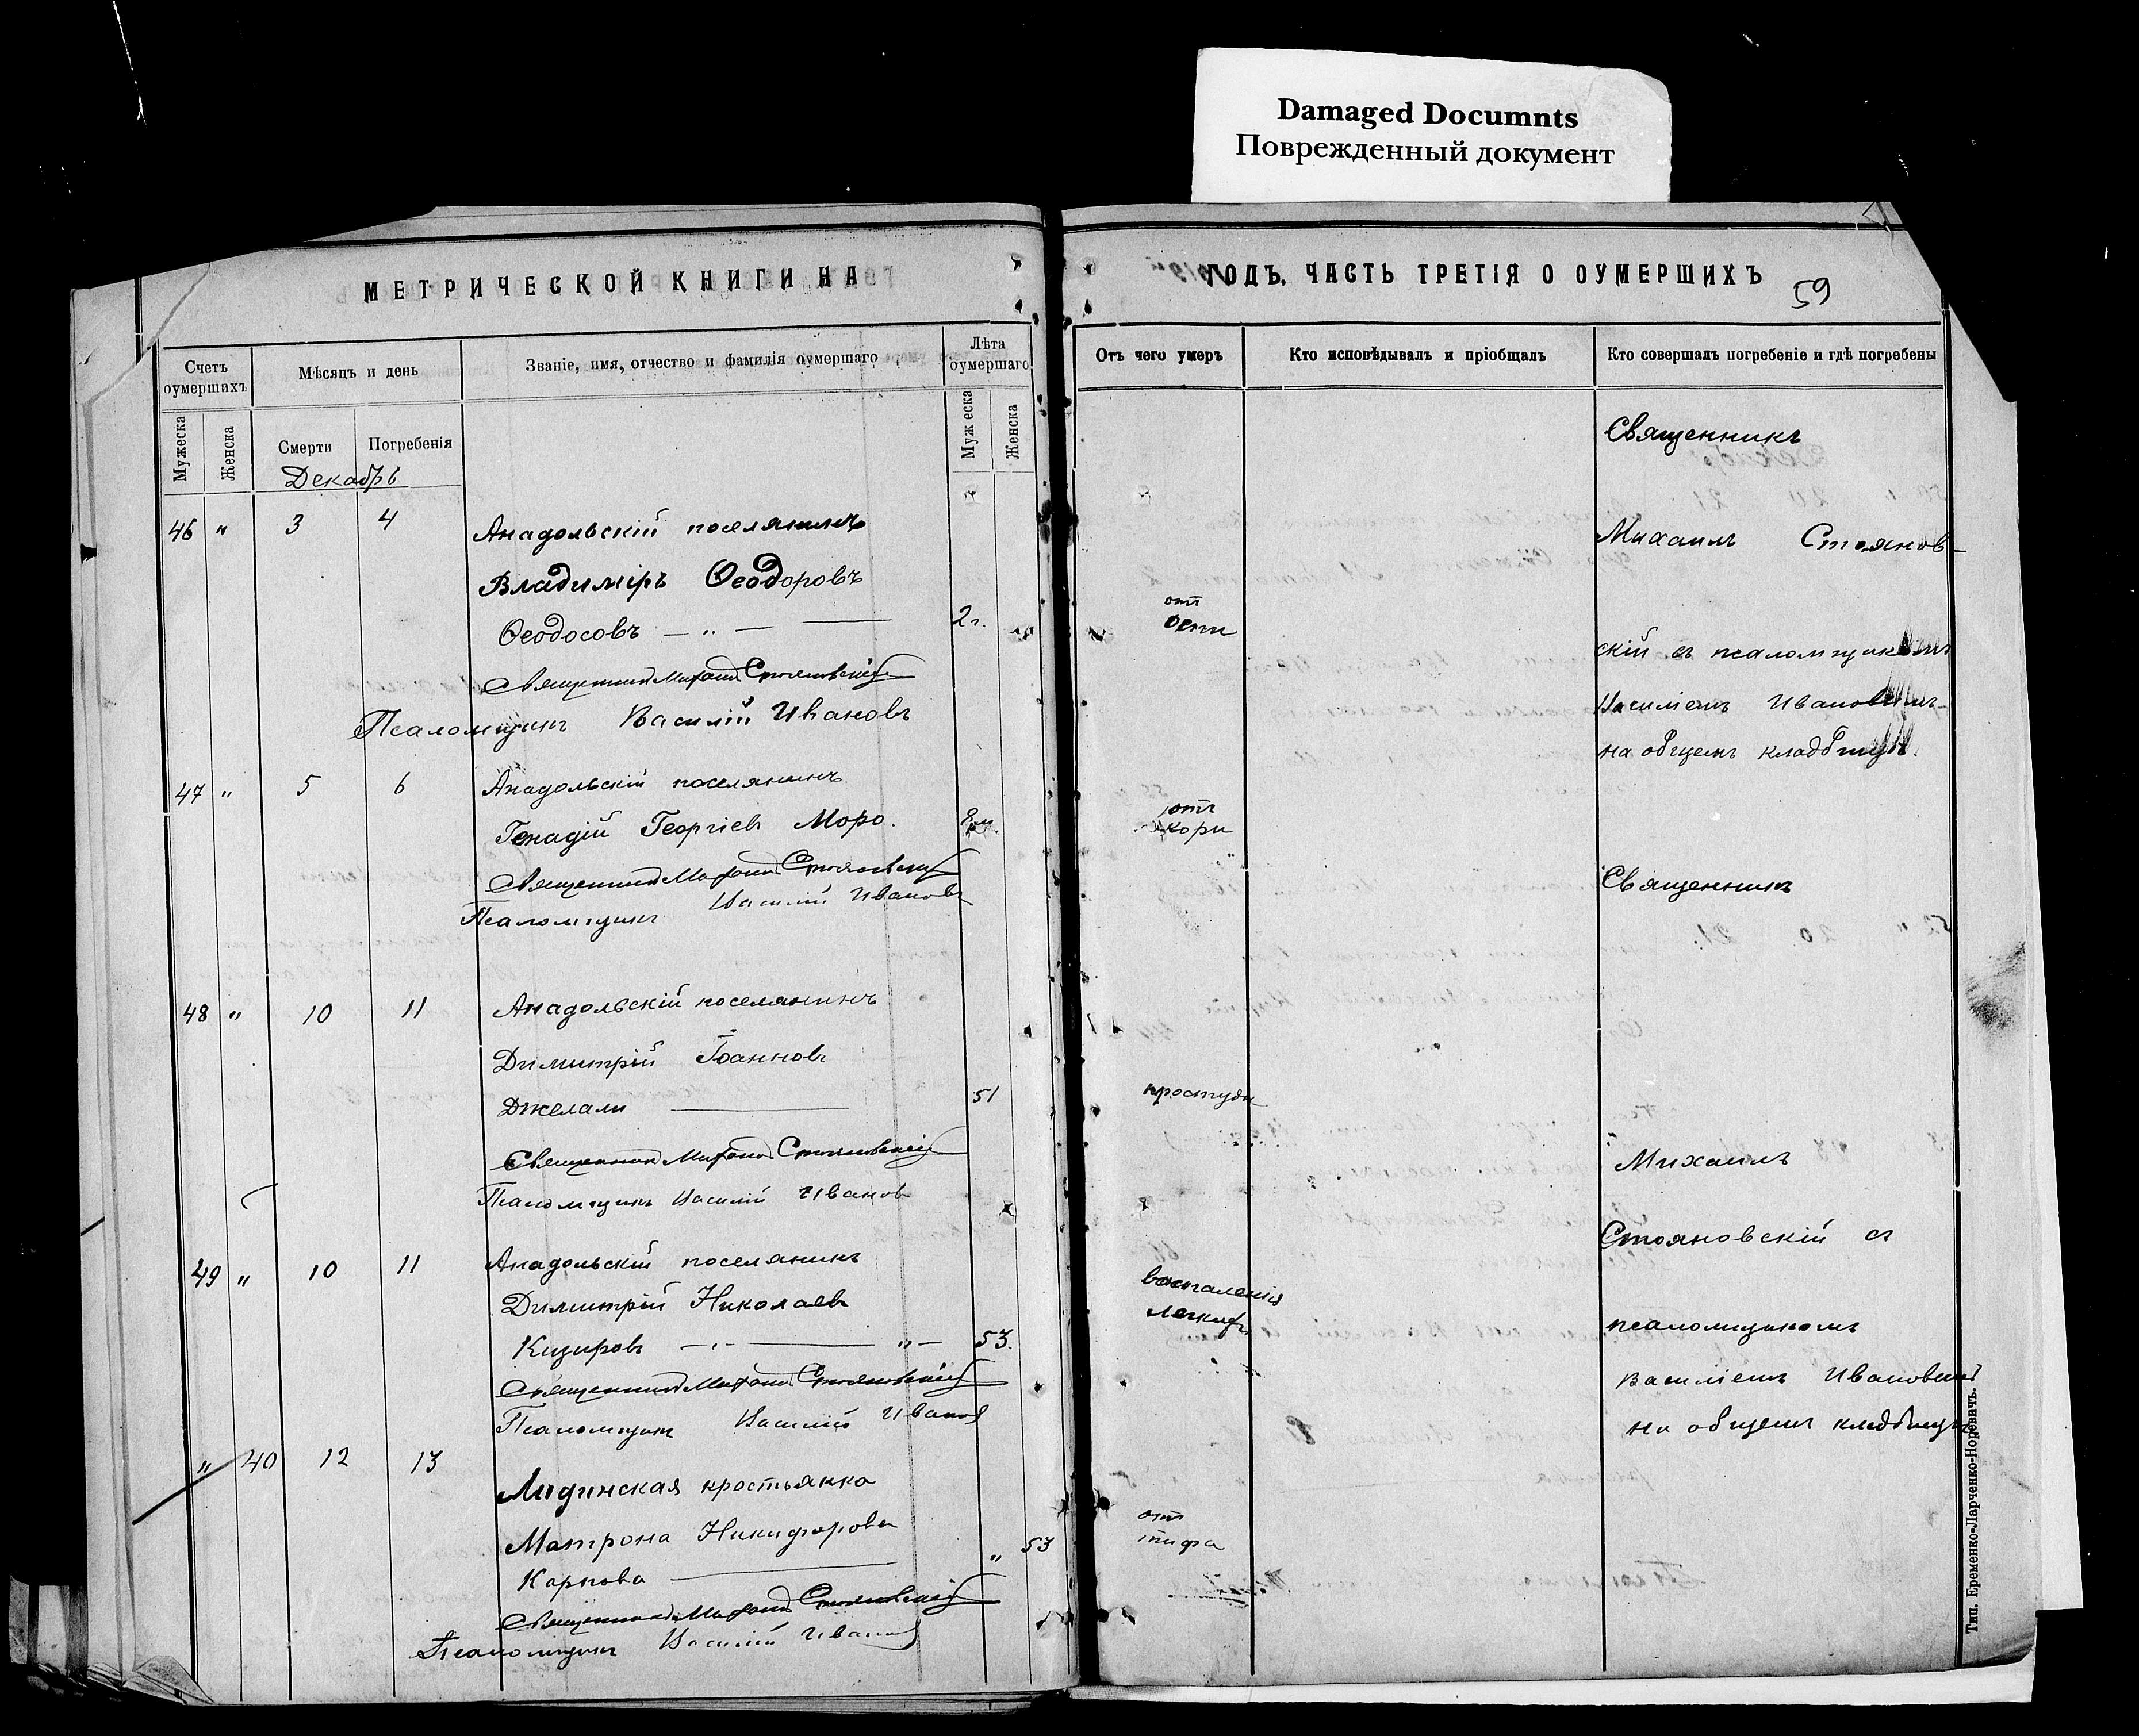 Damaged Documnts
Поврежденный документ
МЕТРИЧЕСКОЙ КНИГИ НА
Счетъ оумершихъ
Мѣсяцъ и день
Званіе, имя, отчество и фамилія оумершаго
Лѣта оумершаго
Мужеска
Женска
Смерти
Погребенія
Муж еска
Женска
Декабрь
46 " 3 4 Анадольскій поселянинъ
Владиміръ Ѳеодоровъ
Ѳеодосовъ — " — — 2 г.
Священникъ Михаилъ Стояновскій
Псаломщикъ Василій Ивановъ
47 " 5 6 Анадольскій поселянинъ
Генадій Георгіевъ Моро. 8 м.
Священникъ Михаилъ Стояновскій
Псаломщикъ Василій Ивановъ
48 " 10 11 Анадольскій поселянинъ
Димитрій Іоанновъ
Джелали — 51
Священникъ Михаилъ Стояновскій
Псаломщикъ Василій Ивановъ
49 " 10 11 Анадольскій поселянинъ
Димитрій Николаевъ
Кизировъ — " — — " — 53.
Священникъ Михаилъ Стояновскій
Псаломщикъ Василій Ивановъ
" 40 12 13
крестьянка
Матрона Никифорова
Карпова — " 53
Священникъ Михаилъ Стояновскій
Псаломщикъ Василій Ивановъ
ГОДЪ. ЧАСТЬ ТРЕТІЯ О ОУМЕРШИХЪ
59
Отъ чего умеръ
Кто исповѣдывалъ и пріобщалъ
Кто совершалъ погребеніе и гдѣ погребены
Священникъ
Михаилъ Стоянов-
отъ
оспи
скій съ псаломщикомъ
Василіемъ Ивановымъ
на общемъ кладбищѣ.
отъ
кори
Священникъ
простуди
Михаилъ
Стояновскій съ
воспаленія
легкихъ
псаломщикомъ
Василіемъ Ивановымъ
на общемъ кладбищѣ
отъ
тифа
Тип. Еременко-Ларченко-Норевичъ.